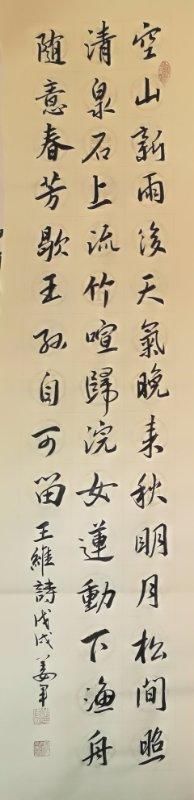 空山新雨後天氣晚来秋明月松間照
清泉石上流竹喧歸浣女蓮動下漁舟
随意春芳歇王孫自可留
王維詩戊戌姜军